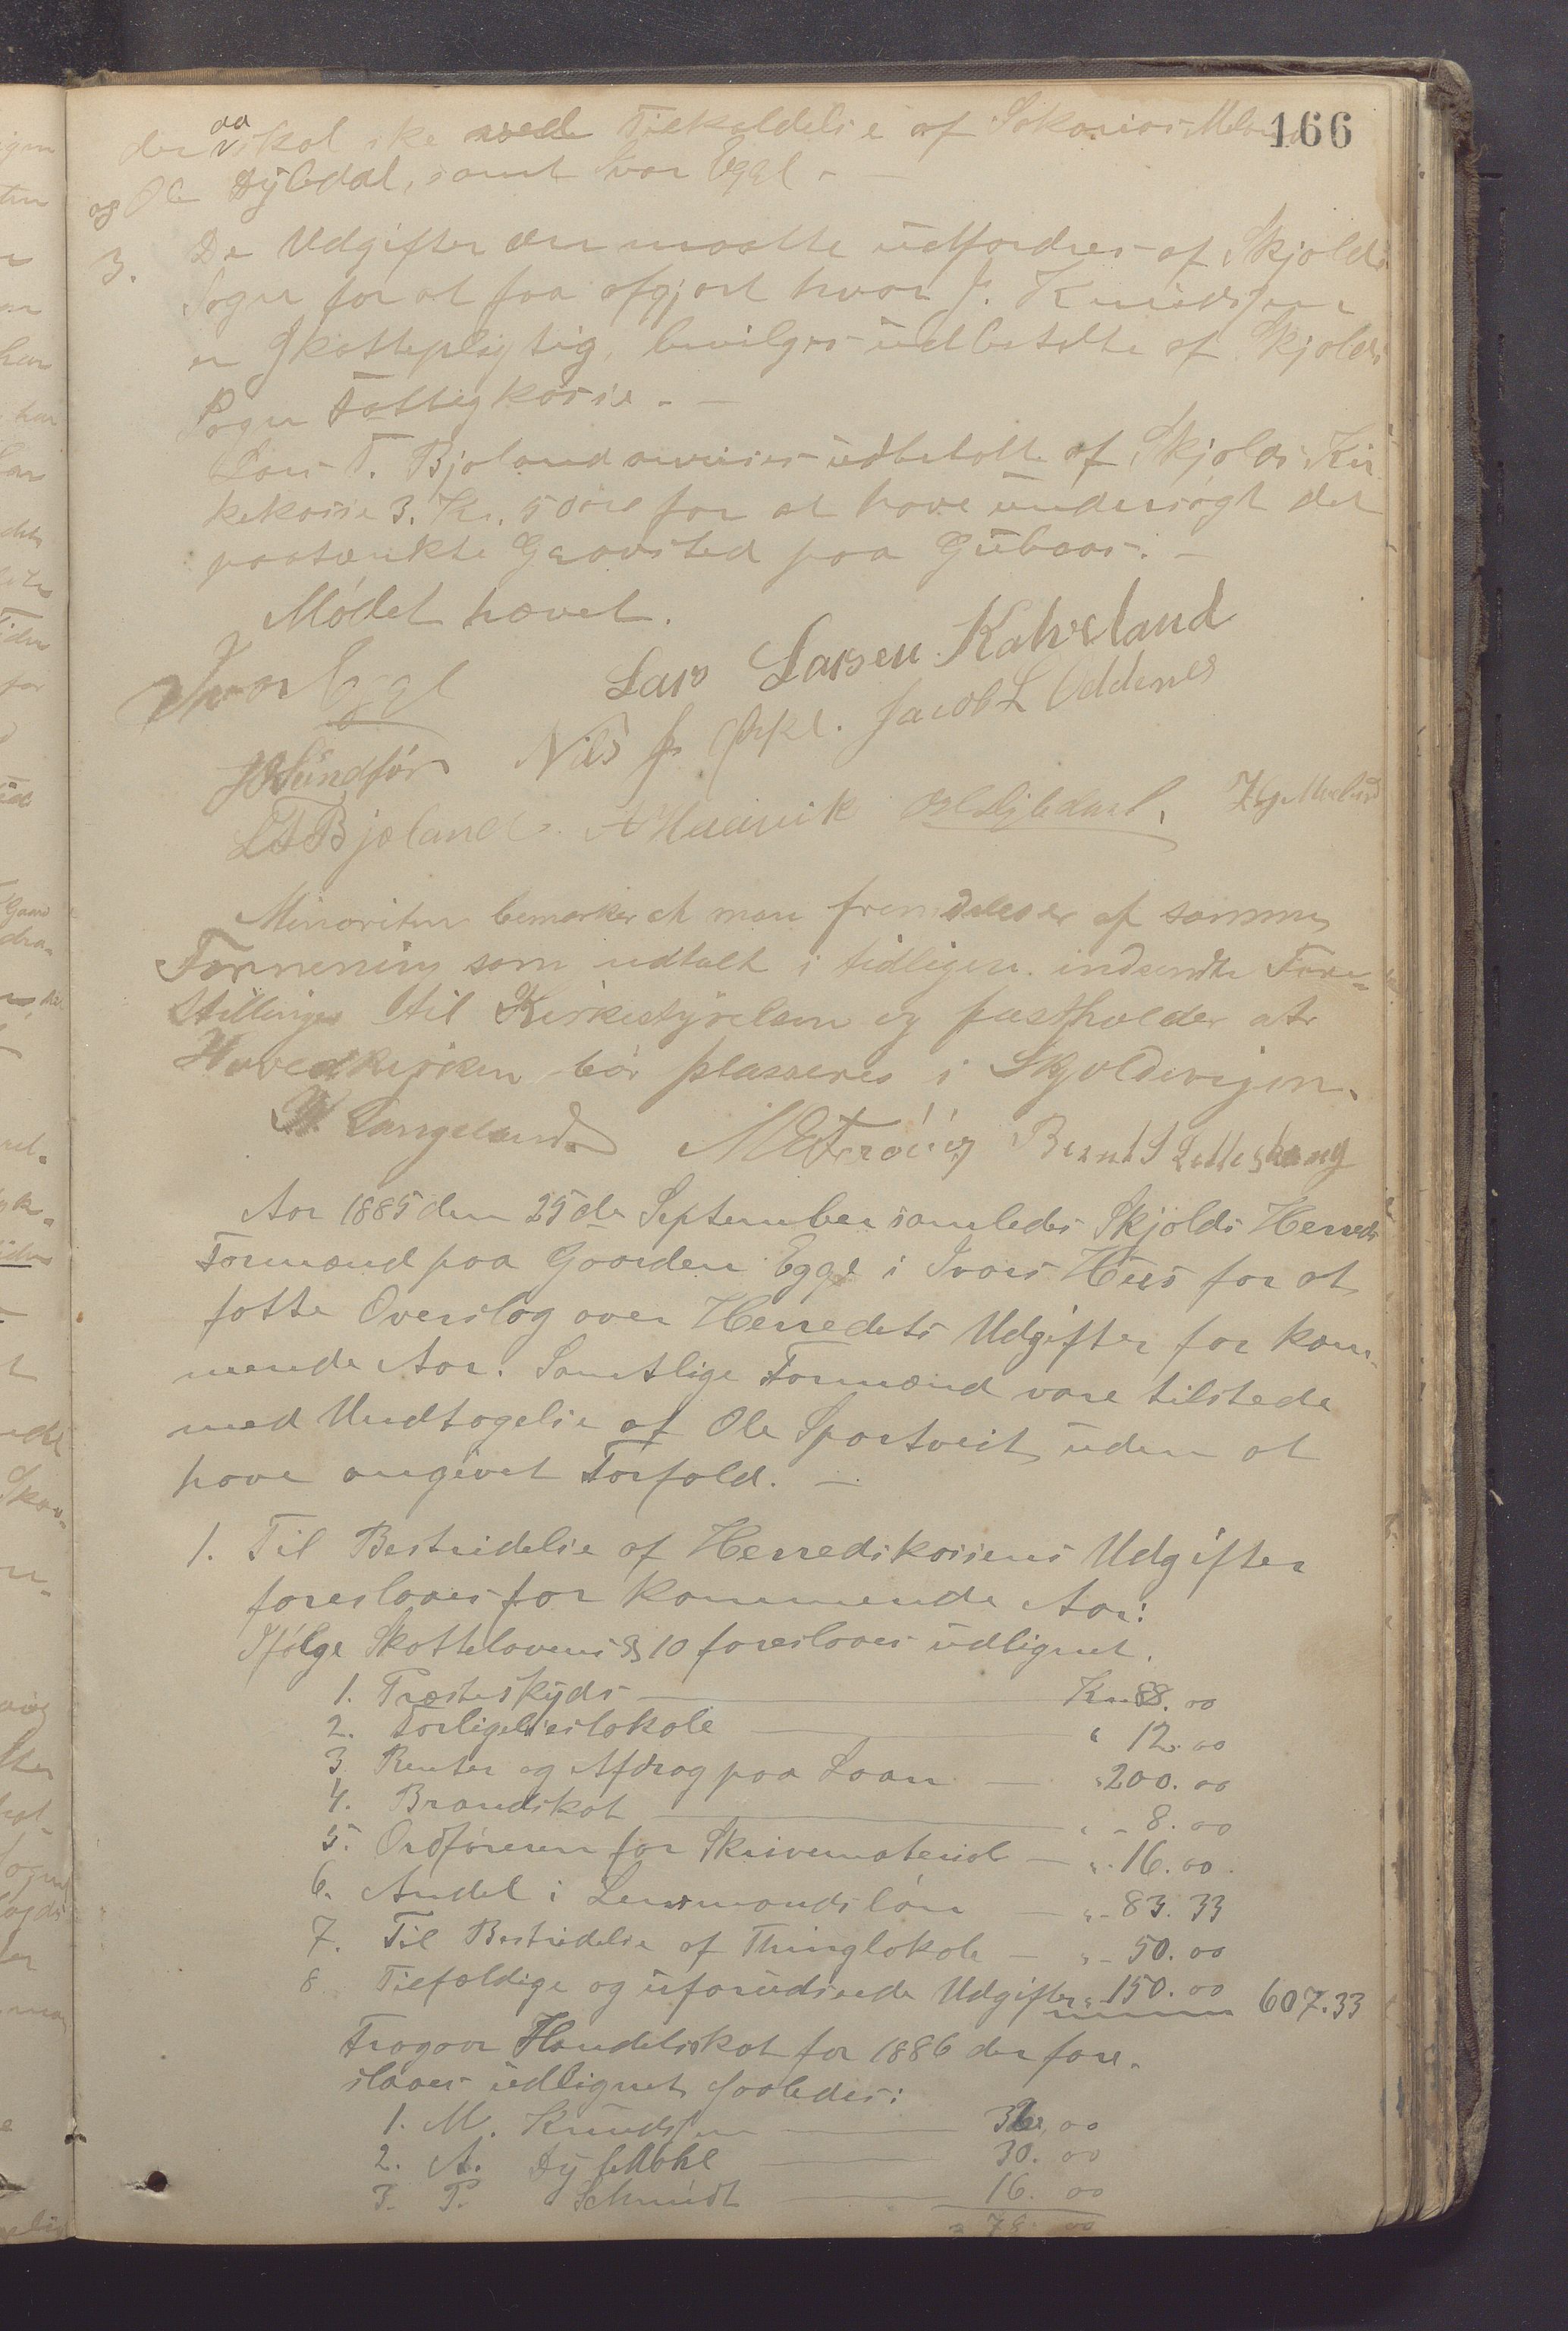 166
der aa skal ske med Tilkaldelse af Sakarias Meland
og Ole Dybdal, samt Ivar Eggl. —
3. De Udgifter der maatte udfordres af Skjolds
Sogn for at faa afgjort hvor J. Knudsen
er Skattepligtig, bevilges udbetalte af Skjolds
Sogns Fattigkasse. —
Lars T. Bjoland anvises udbetalte af Skjolds Kir
kekasse 3. Kr. 50 øre for at have undersøgt det
paatænkte Gravsted paa Gubaas. —
Mødet hævet.
Ivar Eggl Lars Larsen Kalveland
Nils J. Jacob L Oddenes
Sundfør
L T Bjoland. Ole Dybdahl.
Minoriten bemærker at man fremdeles er af samme
Formening som udtalt i tidligere indsendte Fore-
stillinger til Kirkestyrelsen og fastholder at
Hovedkirken bør plasseres i Skjoldevigen.
Langeland Bernt S Letteskaug
Aar 1885 den 25de September samledes Skjolds Herreds
Formænd paa Gaarden Eggl i Ivars Hus for at
fatte Overslag over Herredets Udgifter for kom-
mende Aar. Samtlige Formænd vare tilstede
med Undtagelse af Ole Sportveit uden at
have angivet Forfald. —
1. Til Bestridelse af Herredskassens Udgifter
foreslaaes for kommende Aar:
Ifølge Skattelovens § 10 foreslaaes udlignet.
1. Præsteskyds — Kr. 88. 00
2. Forligelseslokale — " 12. 00
3 Renter og Afdrag paa Laan — " 200. 00
4. Brandskat — " - 8. 00
5. Ordføreren for Skrivemateriel — " 16. 00.
6. Andel i Lensmandsløn — " - 83. 33
7. Til Bestridelse af Thinglokale — " - 50. 00
8 Tilfældige og uforudseede Udgifter " 150. 00 607.33
Fragaar Handelsskat for 1886 der fore-
slaaes udlignet saaledes:
1. M. Knudsen — 32, 00
2. A. Dybdahl — 30. 00
3. P. Schmidt — 16. 00
78. 00